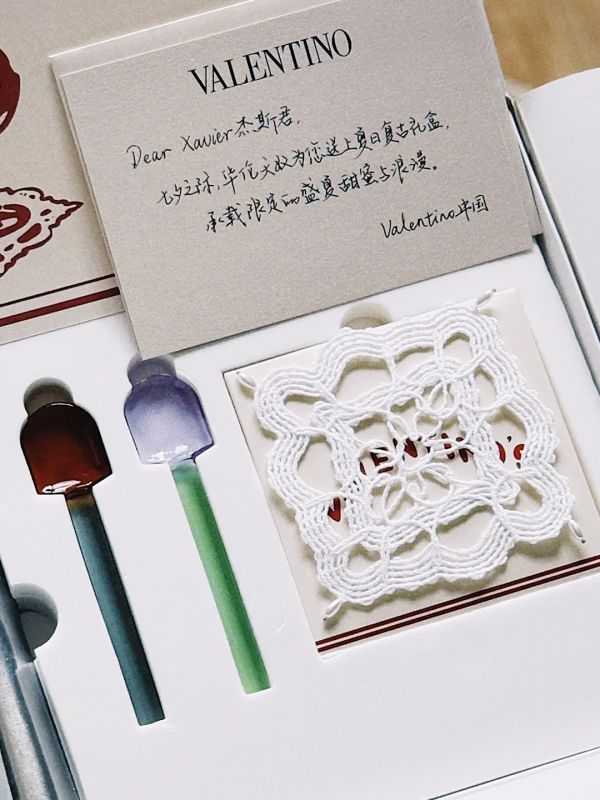 VALENTINO
Dear Xavier杰斯君,
七夕之际,华伦天奴为您送上夏日复古礼盒,
承载限定的盛夏甜蜜与浪漫。
Valentino中国